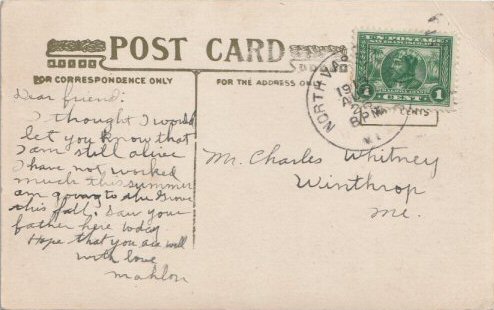 POST CARD
FOR CORRESPONDENCE ONLY
FOR THE ADDRESS ON
U.S. POSTAGE
1 CENT 1
NORTH VA
19
25
8 PM
Dear friend:
I thought I would
let you know that
I am still alive
I have not worked
much this summer
am going to the Grove
this fall. Saw your
father here today
Hope that you are well
with love
Mahlon
Mr. Charles Whitney
Winthrop
Me.